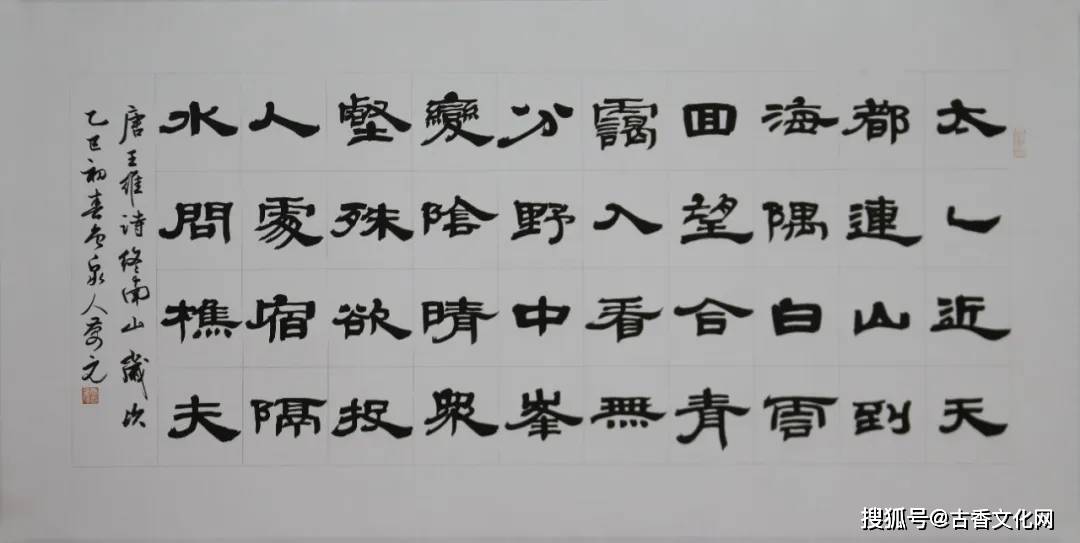 太乙近天
都連山到
海隅白雲
回望合青
靄入看無
分野中峯
變陰晴眾
壑殊欲投
人處宿隔
水問樵夫
唐王維诗终南山歲次
乙巳初春泉人元
搜狐号@古香文化网